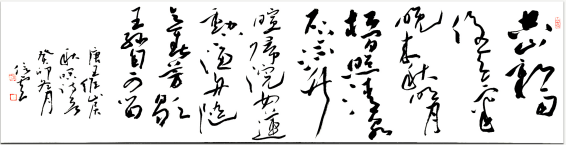 空山新雨
後天氣
晚來秋明月
松間照清泉
石上流竹
喧歸浣女蓮
動漁舟隨
意春芳歇
王孫自可留
唐王維山居
秋暝詩意
癸卯月